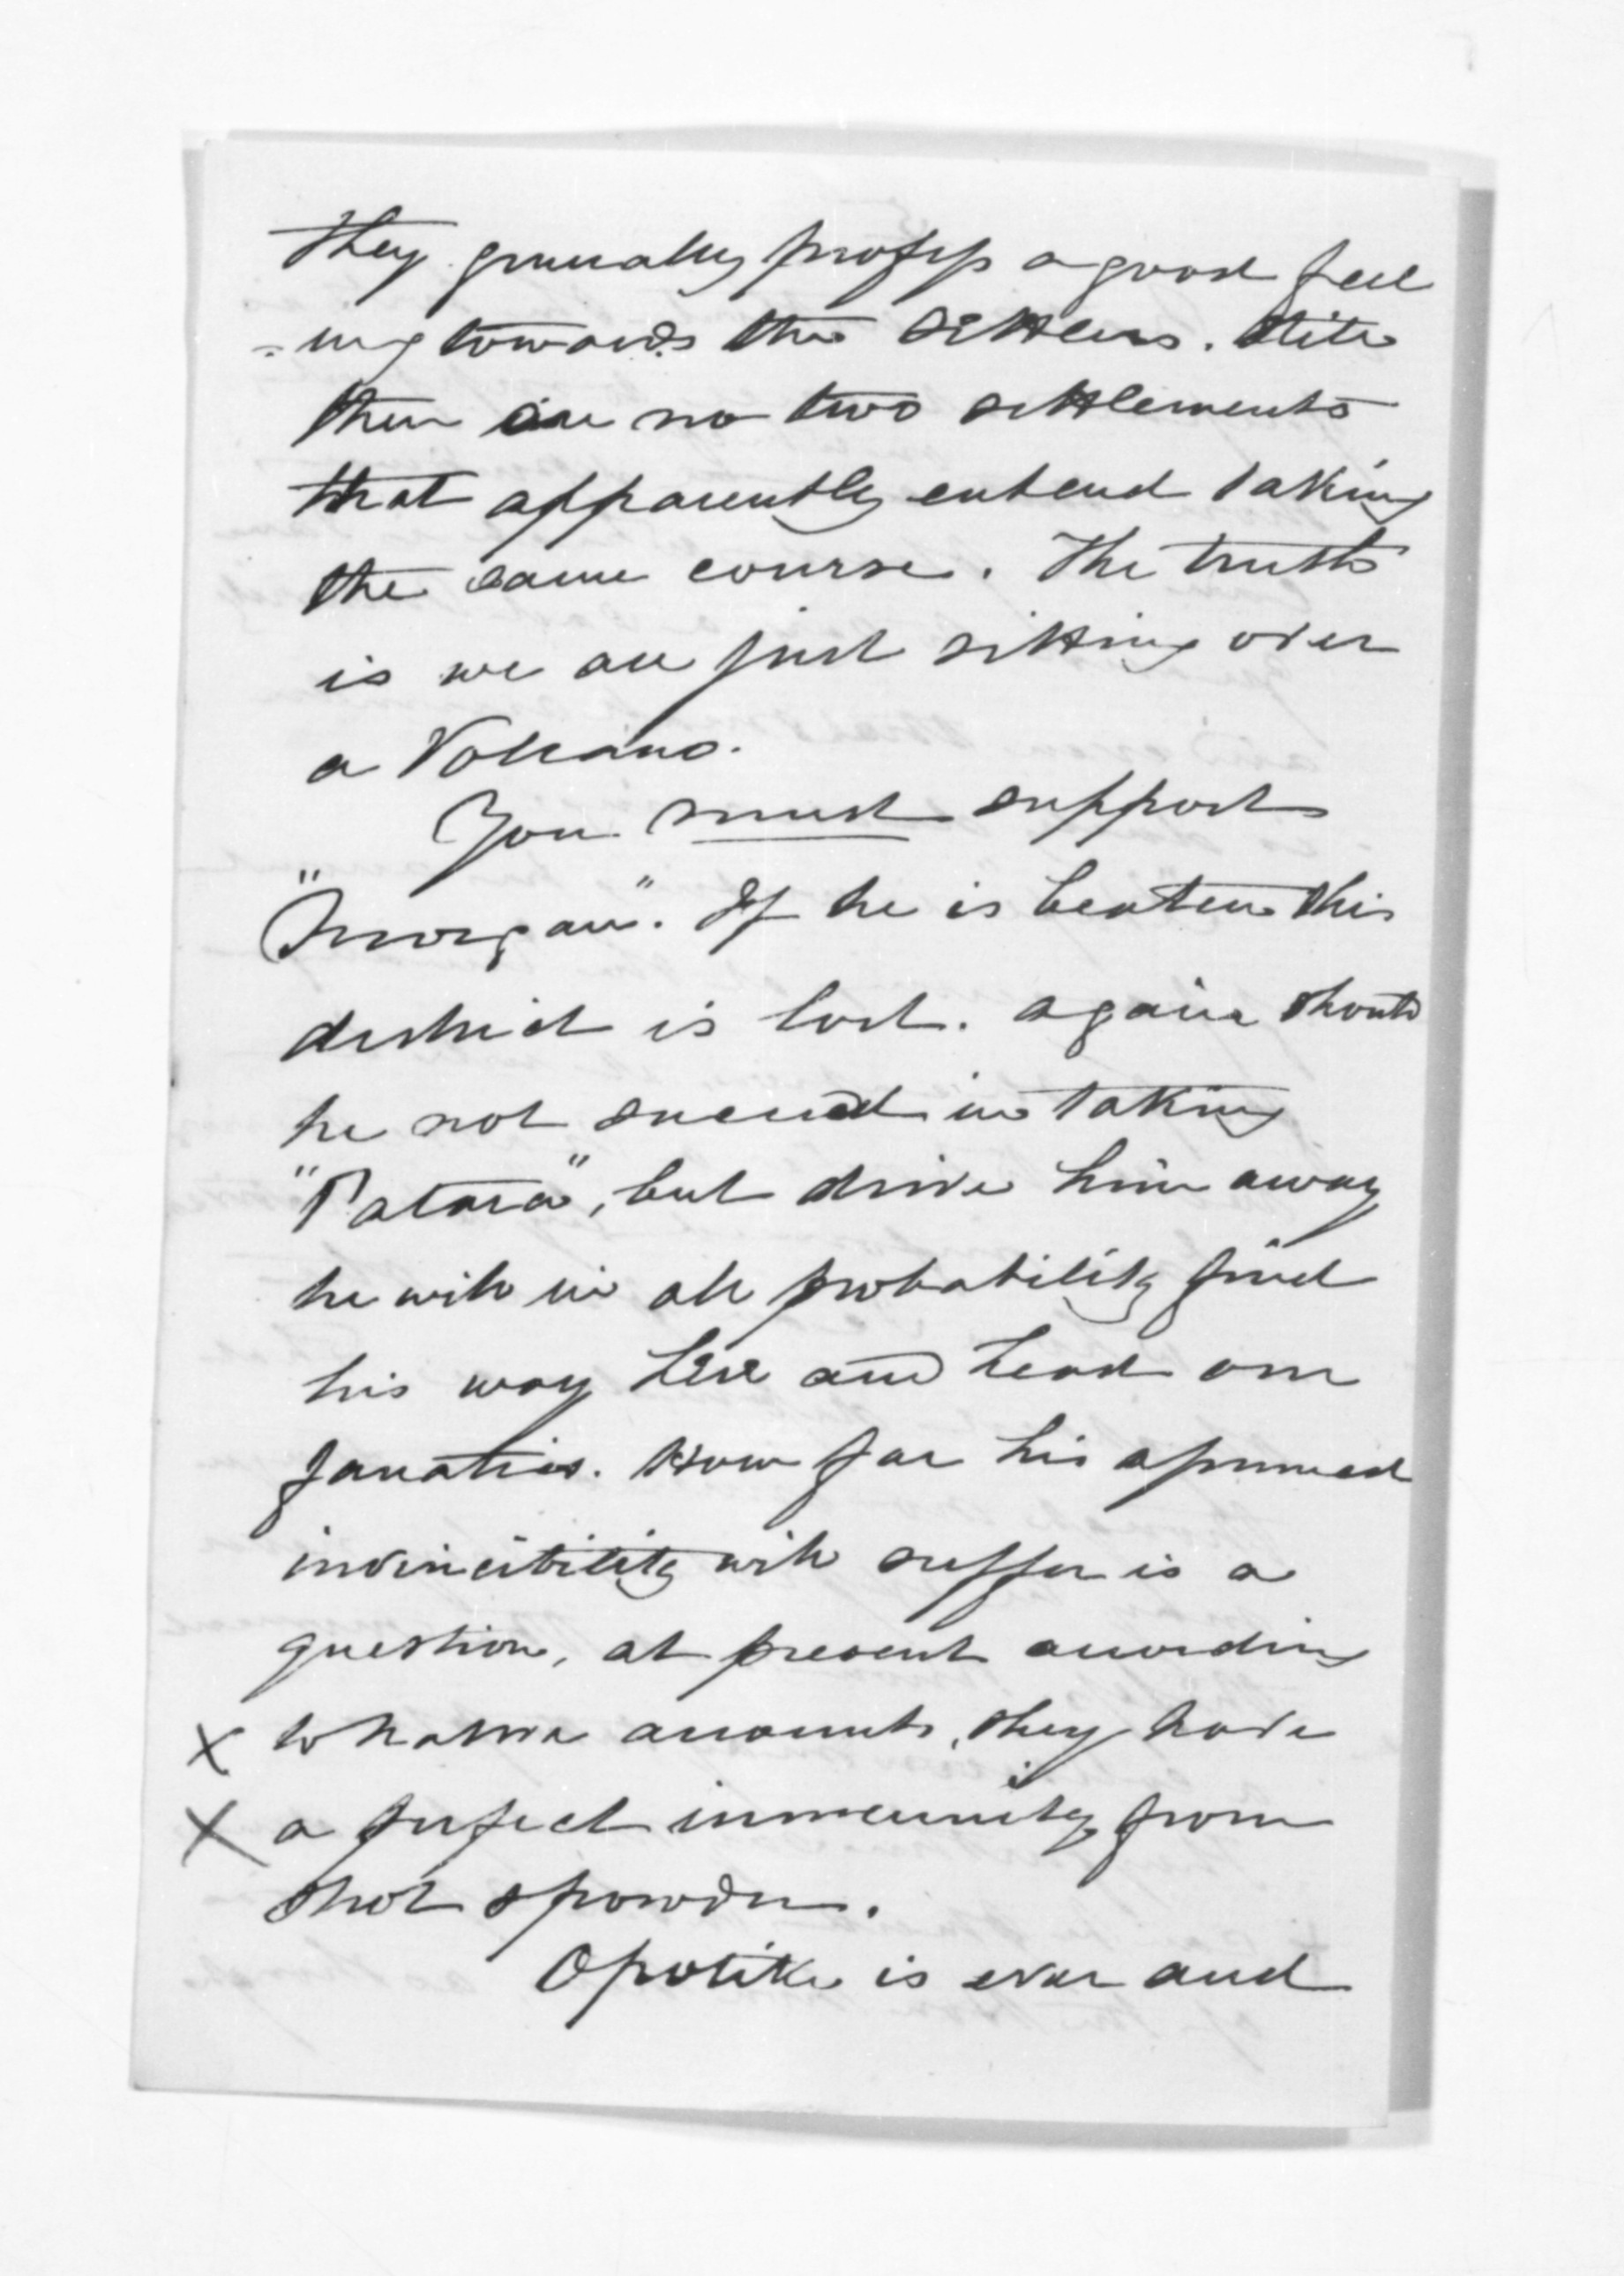 They generally profess a good feel
=ing towards the settlers. Still
there are no two settlements
that apparently entend taking
the same course. The truth
is we are just sitting over
a Volcano.
You must support
"Morgan". If he is beaten this
district is lost. again should
he not succeed in taking
"Patara", but drive him away
he will in all probability find
his way here and head our
fanatics. How far his assumed
invincibility will suffer is a
question, at present according
X to native accounts, they have
X a perfect immunity from
shot & powder.
Opotiki is ever and